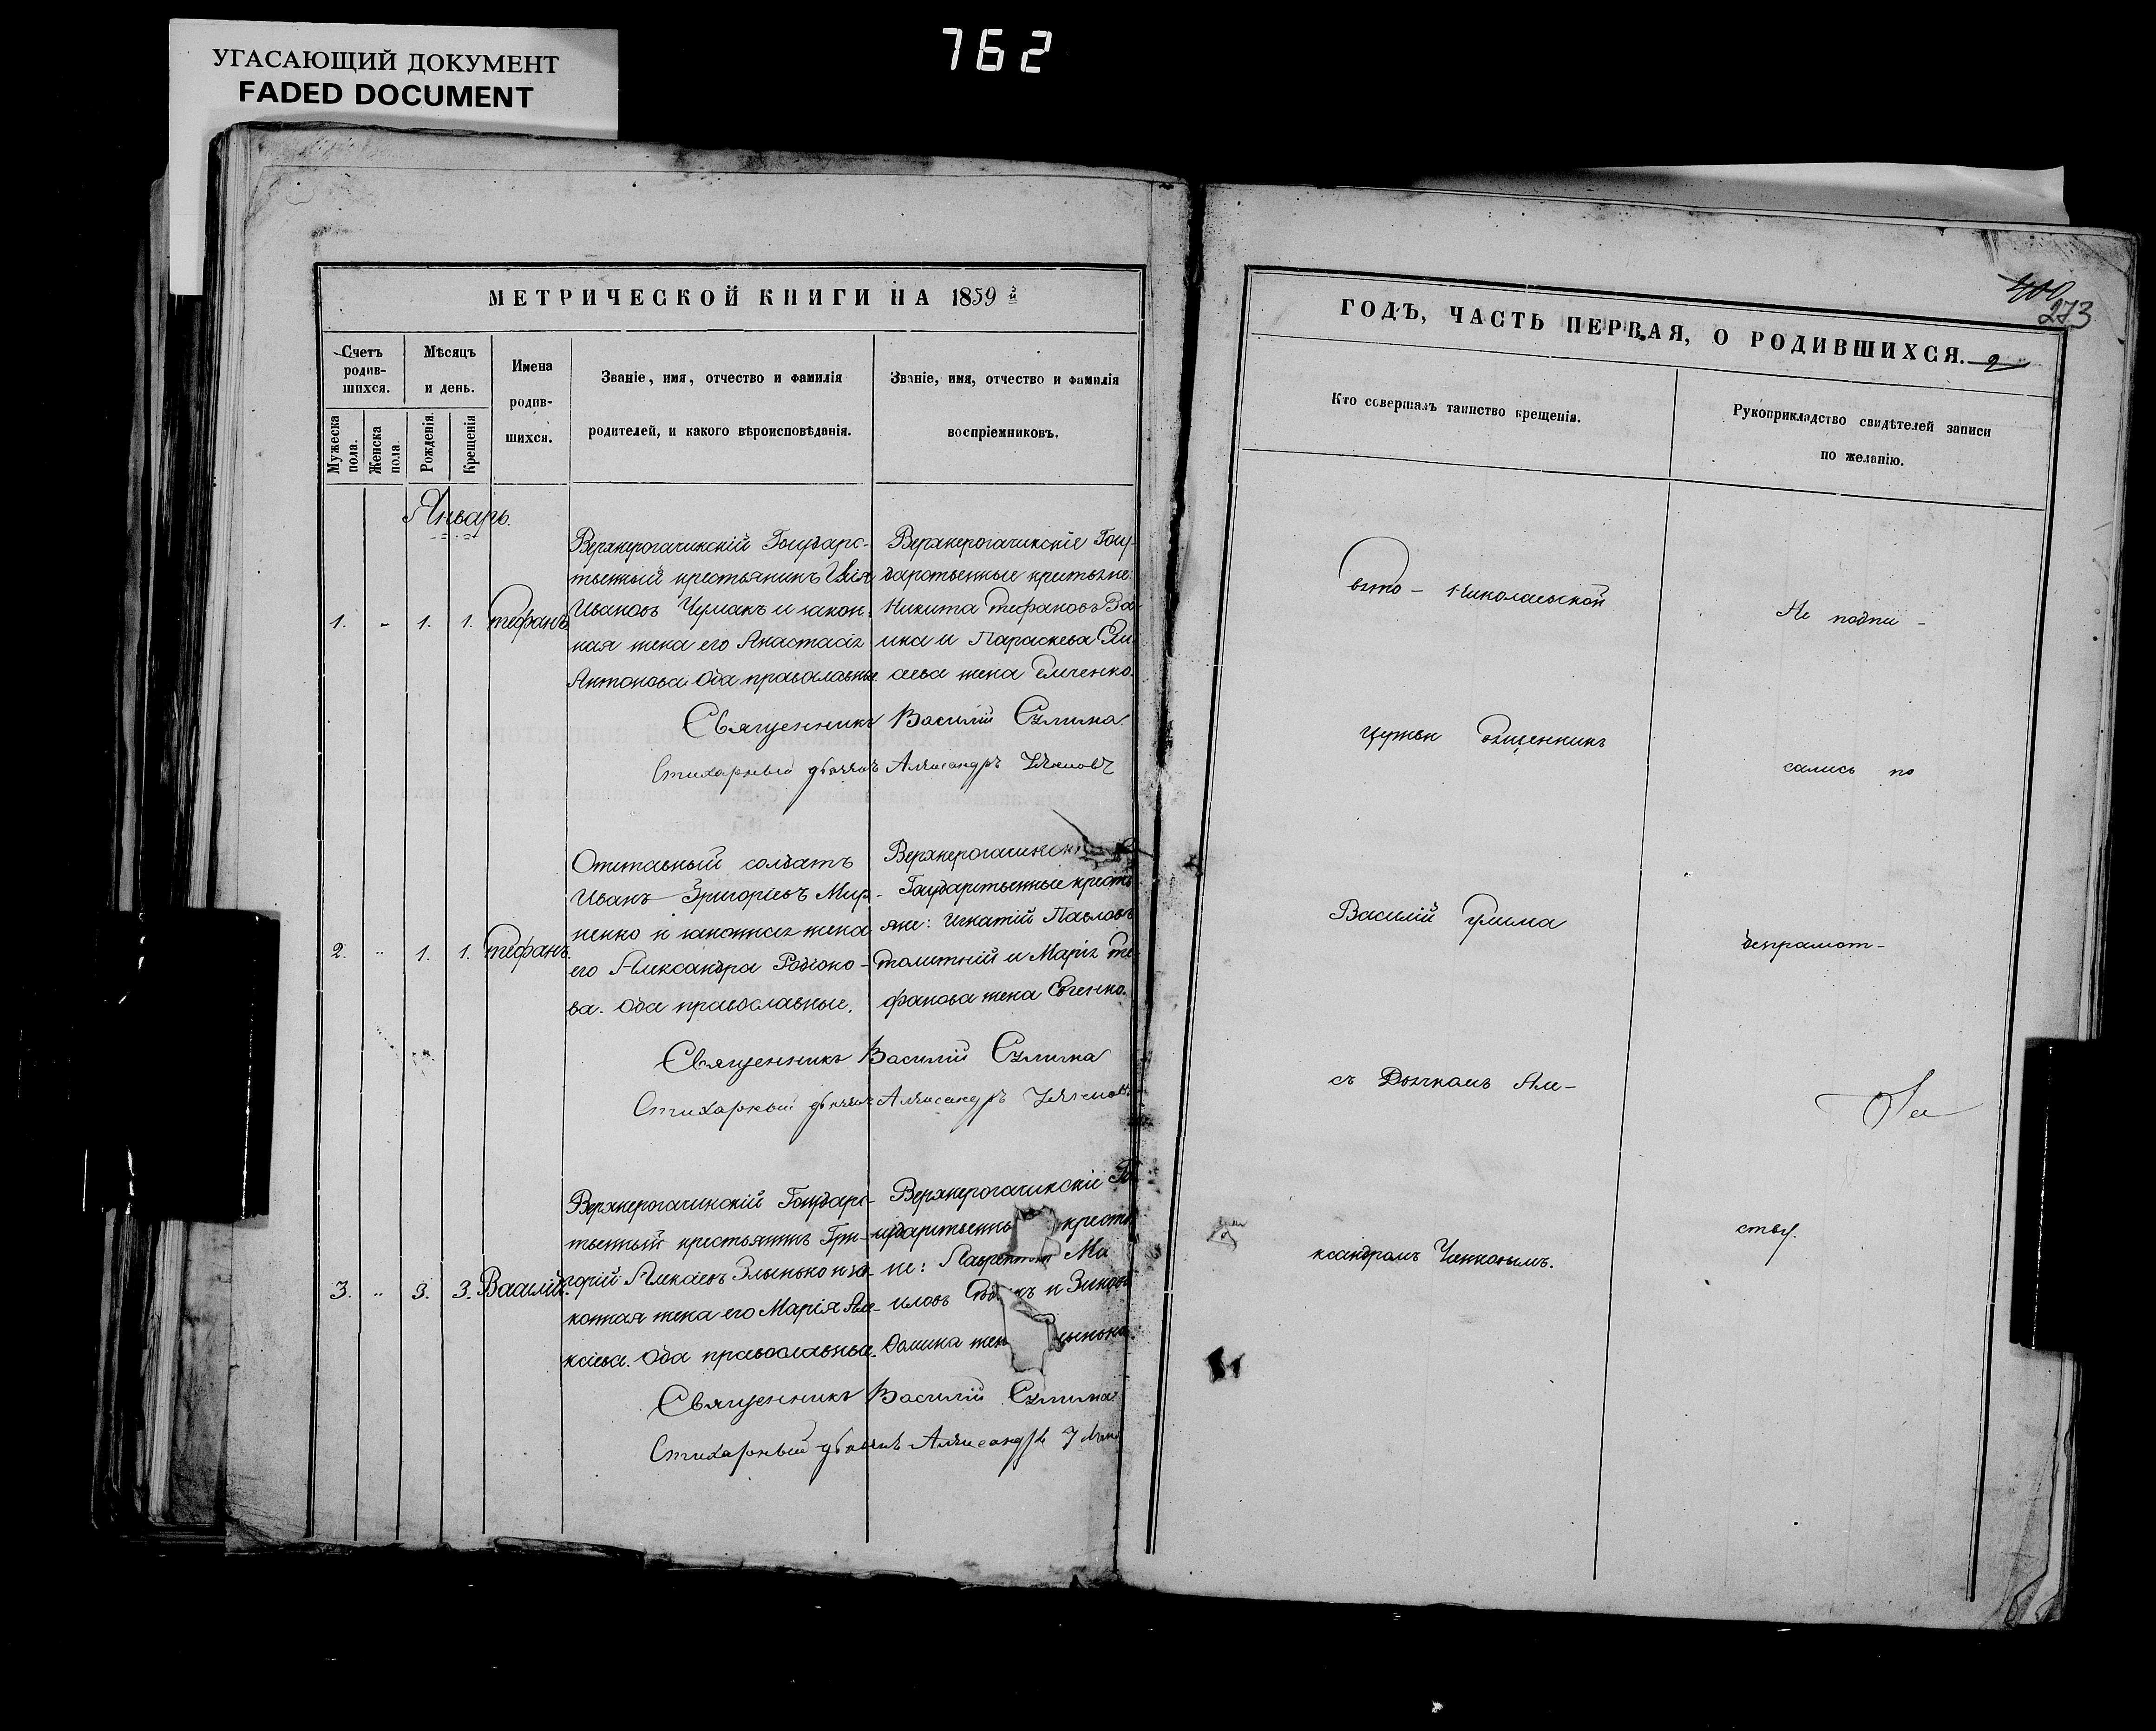 762
УГАСАЮЩИЙ ДОКУМЕНТ
FADED DOCUMENT
МЕТРИЧЕСКОЙ КНИГИ НА 1859 й
Счетъ родив-шихся.
Мѣсяцъ и день.
Имена родив-шихся.
Званіе, имя, отчество и фамилія родителей, и какого вѣроисповѣданія.
Званіе, имя, отчество и фамилія воспріемниковъ.
Мужеска пола.
Женска пола.
Рожденія.
Крещенія
Январь.
1. " 1. 1. Стефанъ
Верхнерогачикскій Государс-
твенный крестьянинъ Илія
Ивановъ Чумакъ и закон-
ная жена его Анастасія
Антонова Оба православные
Верхнерогачикскіе Госу-
дарственные крестьяне:
Никита Стефановъ
и Параскева
жена
Священникъ Василій Сулима
Стихарный дьячокъ Александръ
2. " 1. 1. Стефанъ.
Отставный солдатъ
Иванъ Григоріевъ Мир-
ненко и законная жена
его Александра Родіоно-
ва. Оба православные.
Верхнерогачикскі
Государственные кресть
яне: Игнатій Павловъ
и Марія Сте-
фанова жена
Священникъ Василій Сулима
Стихарный дьячокъ Александръ
3. " 3. 3. Василій.
Верхнерогачикскій Государс-
твенный крестьянинъ Гри-
горій Алексіевъ Злынько и за-
конная жена его Марія Але-
ксіева. Оба православные.
Верхнерогачикскіе Го
сударственны кресть
не: Лаврентій Ми
иловъ и Зинов
жен лынька.
Священникъ Василій Сулима
Стихарный дьячокъ Александръ
400
273
ГОДЪ, ЧАСТЬ ПЕРВАЯ, О РОДИВШИХСЯ. 2
Кто совершалъ таинство крещенія.
Рукоприкладство свидѣтелей записи по желанію.
Свято-Николаевской
церкви Священникъ
Василій Сулима
съ Дьячкомъ Але-
ксандромъ
Не подпи-
сались по
безграмот-
ству.